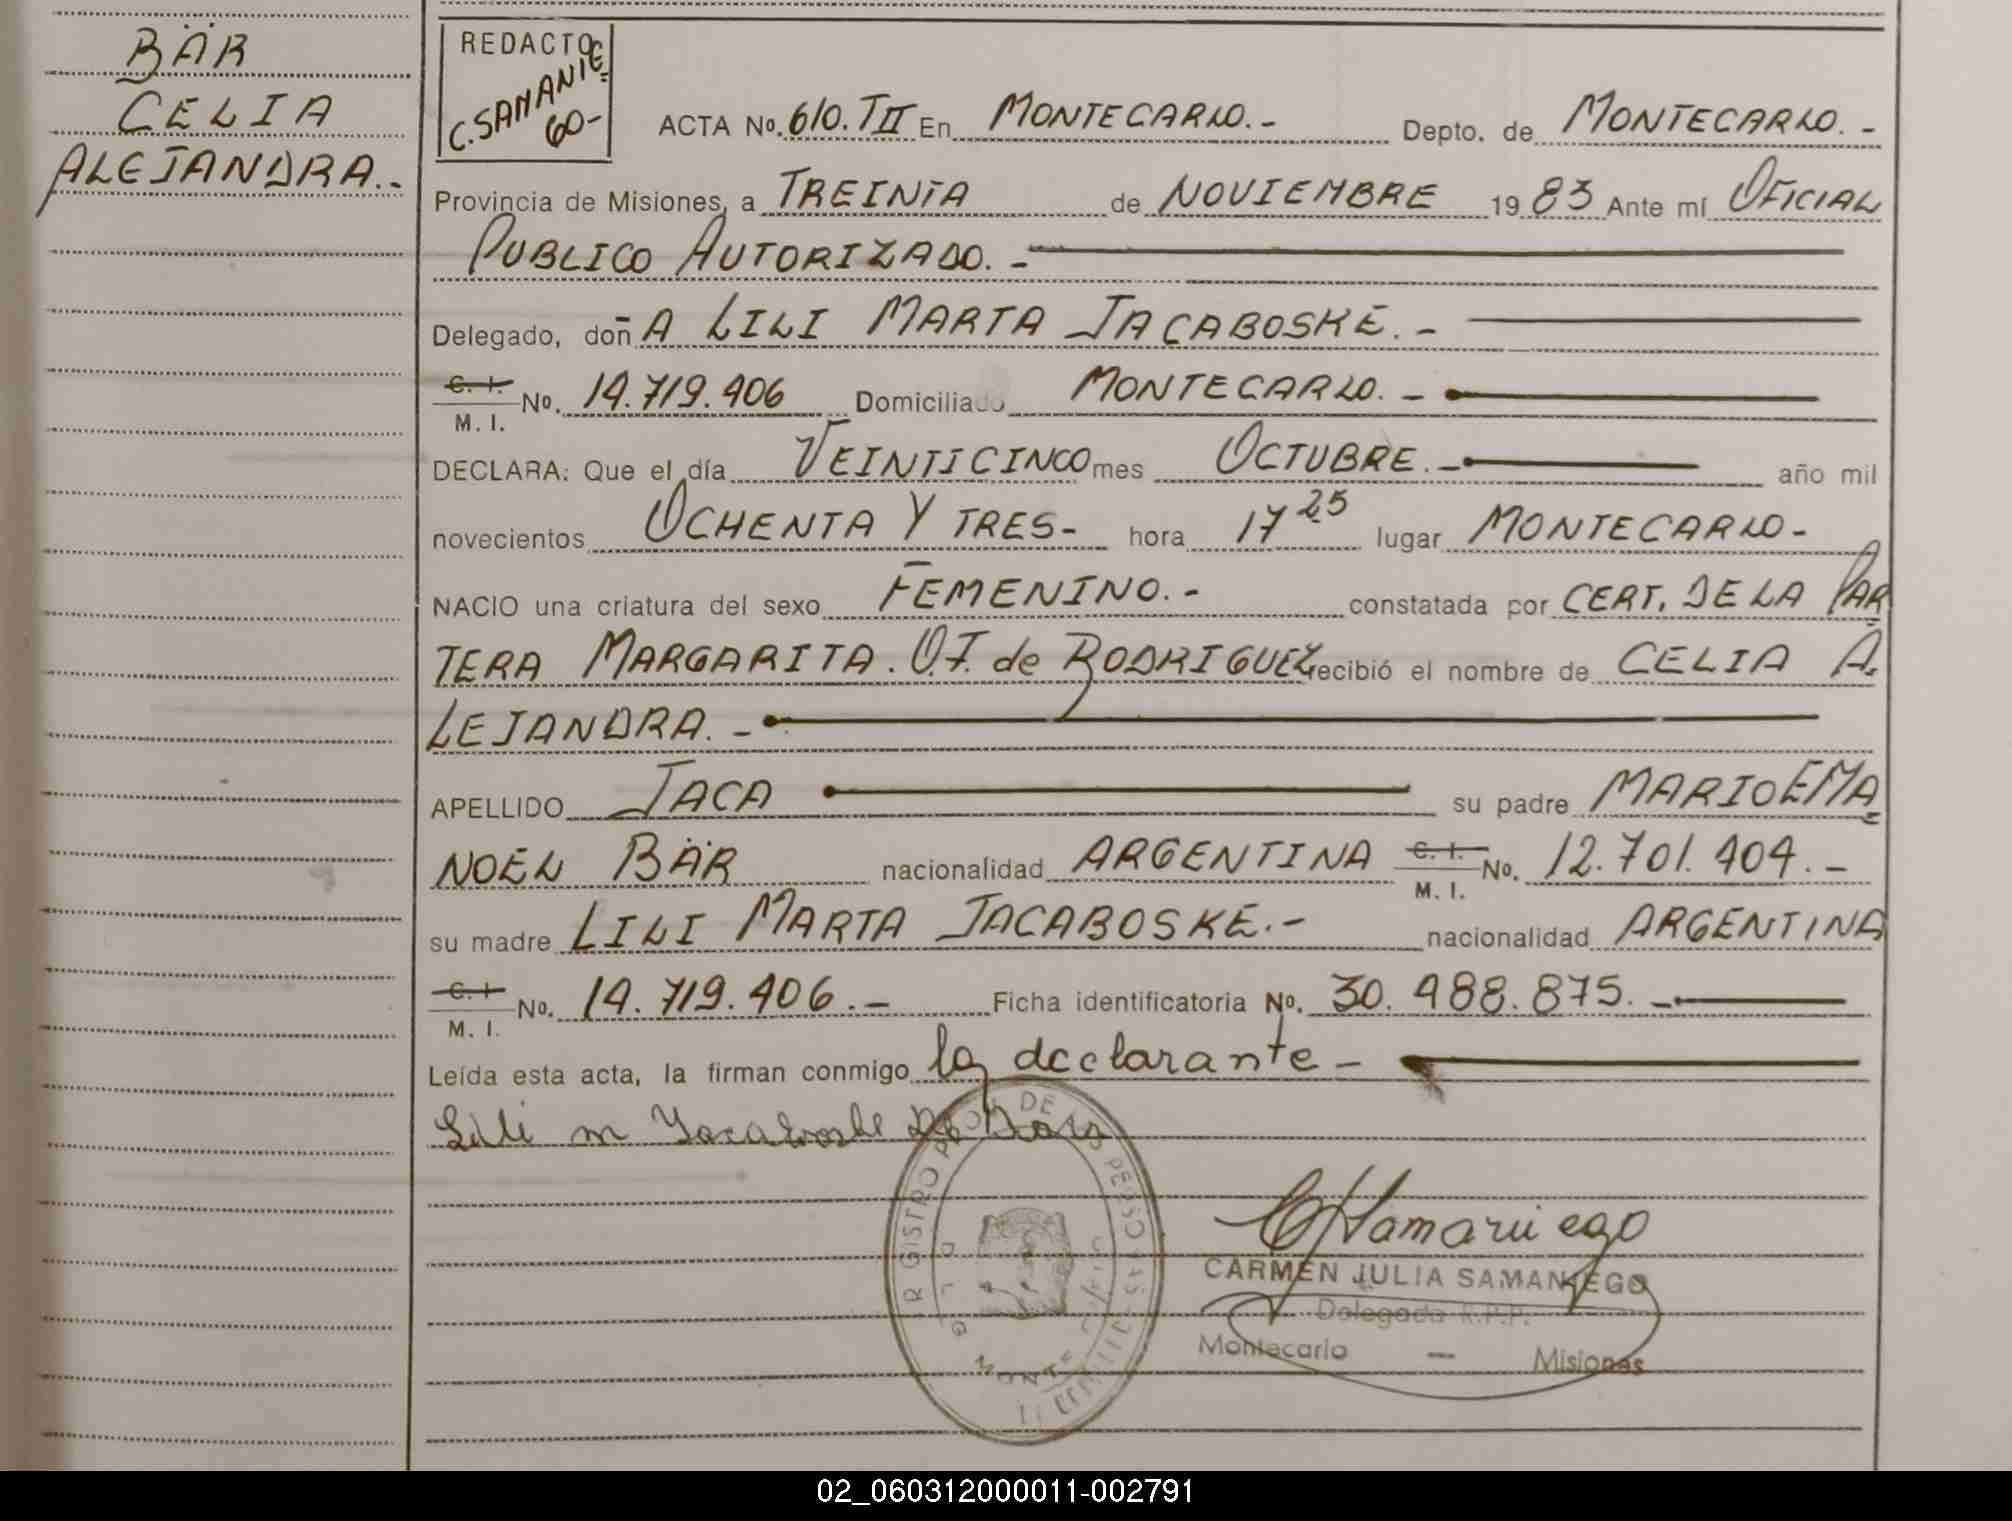 BÄR
CELIA
ALEJANDRA.-
REDACTO
C. SAMANIE=
GO-
ACTA No. 610. T II En MONTECARLO.- Depto. de MONTECARLO.-
Provincia de Misiones, a TREINTA de NOVIEMBRE 1983 Ante mí OFICIAL
PUBLICO AUTORIZADO.-
Delegado, doñA LILI MARTA JACABOSKE.-
C. I. No. 14.719.406 Domiciliado MONTECARLO.-
M. I.
DECLARA: Que el día VEINTICINCO mes OCTUBRE.- año mil
novecientos OCHENTA Y TRES- hora 17 25 lugar MONTECARLO-
NACIO una criatura del sexo FEMENINO.- constatada por CERT. DE LA PAR
TERA MARGARITA. O.F. de RODRIGUEZ recibió el nombre de CELIA A.
LEJANDRA.-
APELLIDO JACA su padre MARIO EMA=
NOEL BÄR nacionalidad ARGENTINA C. I. No. 12.701.404.-
M. I.
su madre LILI MARTA JACABOSKE.- nacionalidad ARGENTINA
C. I No. 14.719.406.- Ficha identificatoria No. 30.488.875.-
M. I.
Leída esta acta, la firman conmigo la declarante-
Lili m Jacaboske de
REGISTRO PROV. DE LAS PERSONAS
MONTE
CSamaniego
CARMEN JULIA SAMANIEGO
Delegada R.P.P.
Montecarlo - Misiones
02_060312000011-002791